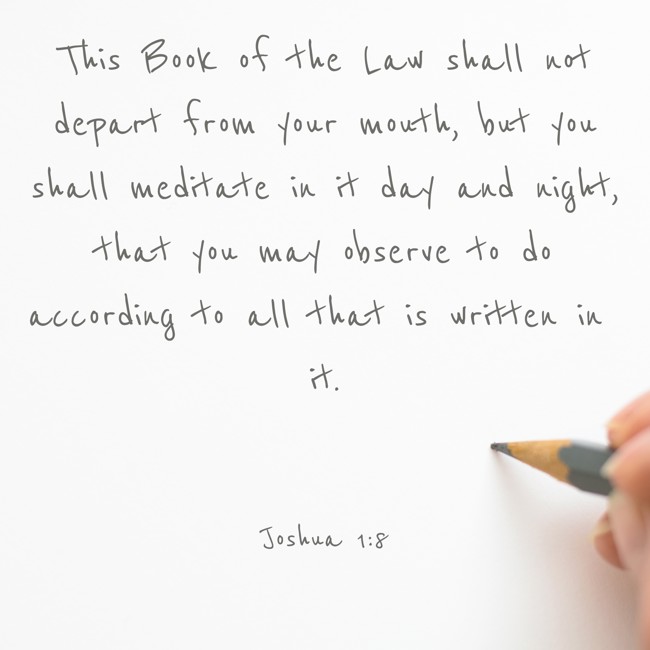 This Book of the Law shall not
depart from your mouth, but you
shall meditate in it day and night,
that you may observe to do
according to all that is written in
it.
Joshua 1:8